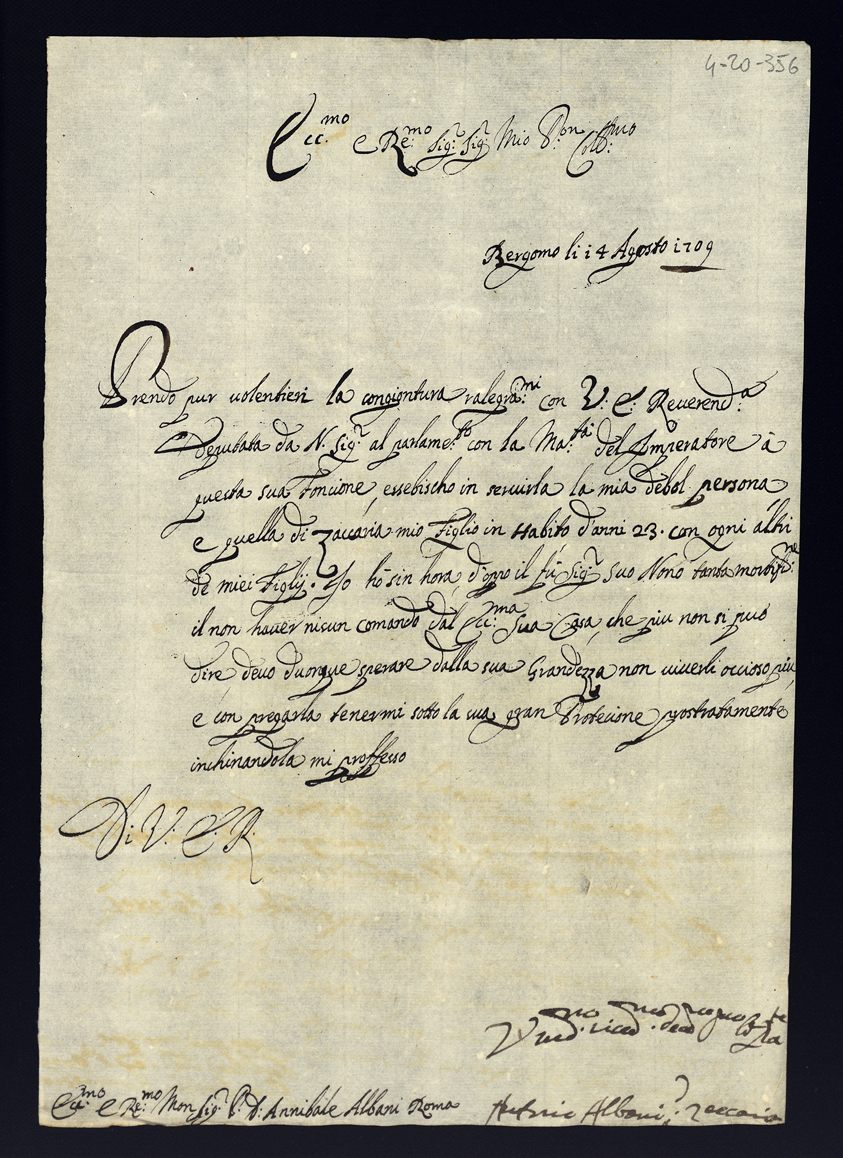 4-20-356
Ecc.mo e Re:mo Sig:r Sig:r Mio P.ron Coll:mo
Bergomo li 14 Agosto 1709
Prendo pur volentieri la congiontura ralegra:mi con V: E: Reverend:a
Deputata da N. Sig:r al parlame:to con la Ma:tà del Imperatore à
questa sua foncione, essebischo in servirla la mia debol persona
e quella di Zaccaria mio Figlio in Habito d'anni 23. con ogni altri
de miei Figlij. Io hò sin hora d'oppo il fù Sig:r suo Nono tanta
il non haver nisun comando dal Ecc:ma Sua Casa, che piu non si puo
dire devo duonque sperare dalla sua Grandezza non viverli occioso più,
e con pregarla tenermi sotto la sua gran Protecione prostratamente
inchinandola mi proffesso
Di V: E: R.
V
Ecc:mo e Re:mo Mon Sig:r P. D: Annibale Albani Roma
Albani Zaccaria